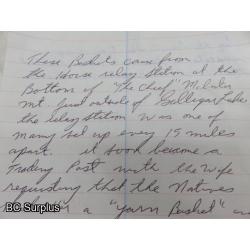 These Baskets came from
the House relay station at the
Bottom of "The Chief" Mtn
Mt. just outside of Lake
the relay station was one of
many set up every 15 miles
apart. it soon become a
Trading Post with the Wife
requesting that the Natives
a "yarn Basket"
BC Surplus